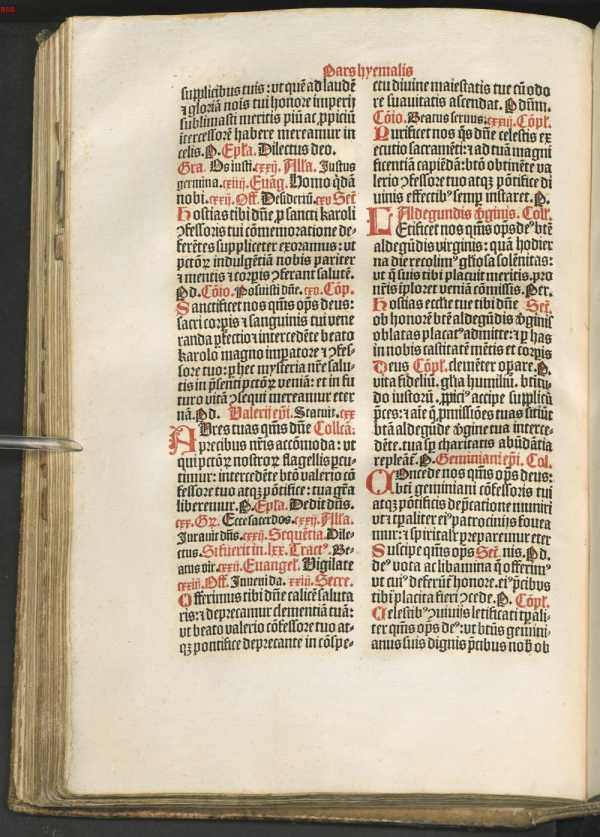 Pars hyemalis
supplicibus tuis: vt quē ad laudē
⁊ gloriā nois tui honore imperij
sublimasti meritis piū ac ꝓpiciū
īter̄cessorē habere mereamur in
celis. P. Epl̄a. Dilectus deo.
Gra. Os iusti. cxxij. All̄a. Justus
germina. cxiiij. Euāg. Homo q̄dā
nobi. cxxij. Off. Desideriū. cxv Secr̄
Hostias tibi dn̄e ꝓ sancti karoli
ꝯfessoris tui cōmemoratione de-
ferētes suppliciter exoramus: vt
pctōꝝ indulgētiā nobis pariter
⁊ mentis ⁊ corpis ꝯferant salutē.
Pd. Cōio. Posuisti dn̄e. cxv. Cōp.
Sanctificet nos qm̄s ops̄ deus:
sacri corpis ⁊ sanguinis tui vene
randa ꝑceptio ⁊ intercedēte beato
karolo magno imp̄atore ⁊ ꝯfes-
sore tuo: ꝑ hec mysteria nr̄e salu-
tis in p̄senti pctōꝝ veniā: et in fu
turo vitā ꝯsequi mereamur eter
nā. Pd. Valerij ep̄i. Statuit. cxx
AUres tuas qm̄s dn̄e Collc̄a:
precibus nr̄is accōmoda: vt
qui pctōꝝ nostroꝝ flagellis ꝑcu-
timur: intercedēte btō valerio cō
fessore tuo atqꝫ pōtifice: tua gr̄a
liberemur. P. Epl̄a. Dedit dn̄s.
cxx. Gr̄. Ecce sacerdos. cxxij. All̄a.
Jurauit dn̄s. cxxij. Sequētia. Dile-
ctus. Si fuerit in .lxx. Tractꝰ. Be-
atus vir. cxxij. Euangel̄. Vigilate
cxxiij. Off. Inueni da. xxiij. Secre.
Offerimus tibi dn̄e calicē saluta
ris: ⁊ deprecamur clementiā tuā:
vt beato valerio cōfessore tuo at-
qꝫ pontifice deprecante in cōspe-
ctu diuine maiestatis tue cū odo
re suauitatis ascendat. P dn̄m.
Cōio. Beatus seruus. cxxij. Cōpl̄.
Purificet nos q̄s dn̄e celestis ex
ecutio sacramēti: ⁊ ad tuā magni
ficentiā capiēdā: btō obtinēte va
lerio ꝯfessore tuo atqꝫ pōtifice di
uinis effectibꝰ semp̄ instaret. P.
Aldegundis v̄ginis. Coll̄.
LEtificet nos qm̄s ops̄ deꝰ btē
aldegūdis virginis: quā hodier
na die recolimꝰ gl̄iosa solēnitas:
vt q̄ suis tibi placuit meritis. pro
nr̄is īploret veniā cōmissis. Per.
Hostias ecclīe tue tibi dn̄e Secr̄.
ob honorē btē aldegūdis v̄ginis
oblatas placatꝰ admitte: ⁊ ꝑ has
in nobis castitatē mētis et corpis
Deus Cōpl̄. clemēter opare. P.
vita fideliū. gl̄ia humiliū. btitu-
do iustorū. ꝓpiciꝰ accipe suppliciū
p̄ces: ⁊ aīe q̄ ꝓmissiōes tuas sitiūt
btā aldegūde v̄gine tua interce-
dēte. tua sp̄ charitatis abūdātia
repleāt̄. P. Geminiani ep̄i. Col.
COncede nos qm̄s ops̄ deus:
bti geminiani cōfessoris tui
atqꝫ pōtificis dep̄catione muniri
vt ⁊ tp̄aliter eiꝰ patrocinijs fouea
mur: ⁊ spiritalr̄ p̄reparemur eter
Suscipe qm̄s ops̄ Secr̄. nis. Pd.
deꝰ vota ac libamina q̄ offerimꝰ
vt cuiꝰ deferūt̄ honore. eiꝰ p̄cibus
tibi placita fieri ꝯcede. P. Cōpl̄.
Celestibꝰ ꝯuiuijs letificati tp̄ali-
ter qm̄s ops̄ deꝰ: vt btūs gemini-
anus suis dignis p̄cibus nob̄ ob